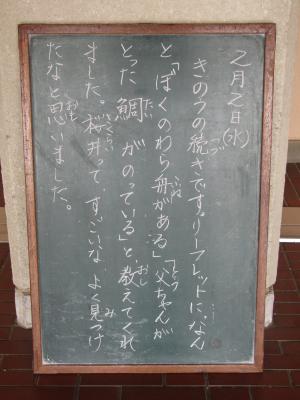 2月2日(水)
きのうの続きです。リーフレットに、なん
と「ぼくのわら舟がある」「父ちゃんが
とった鯛がのっている」と教えてくれ
ました。桜井って、すごいな よく見つけ
たなと思いました。